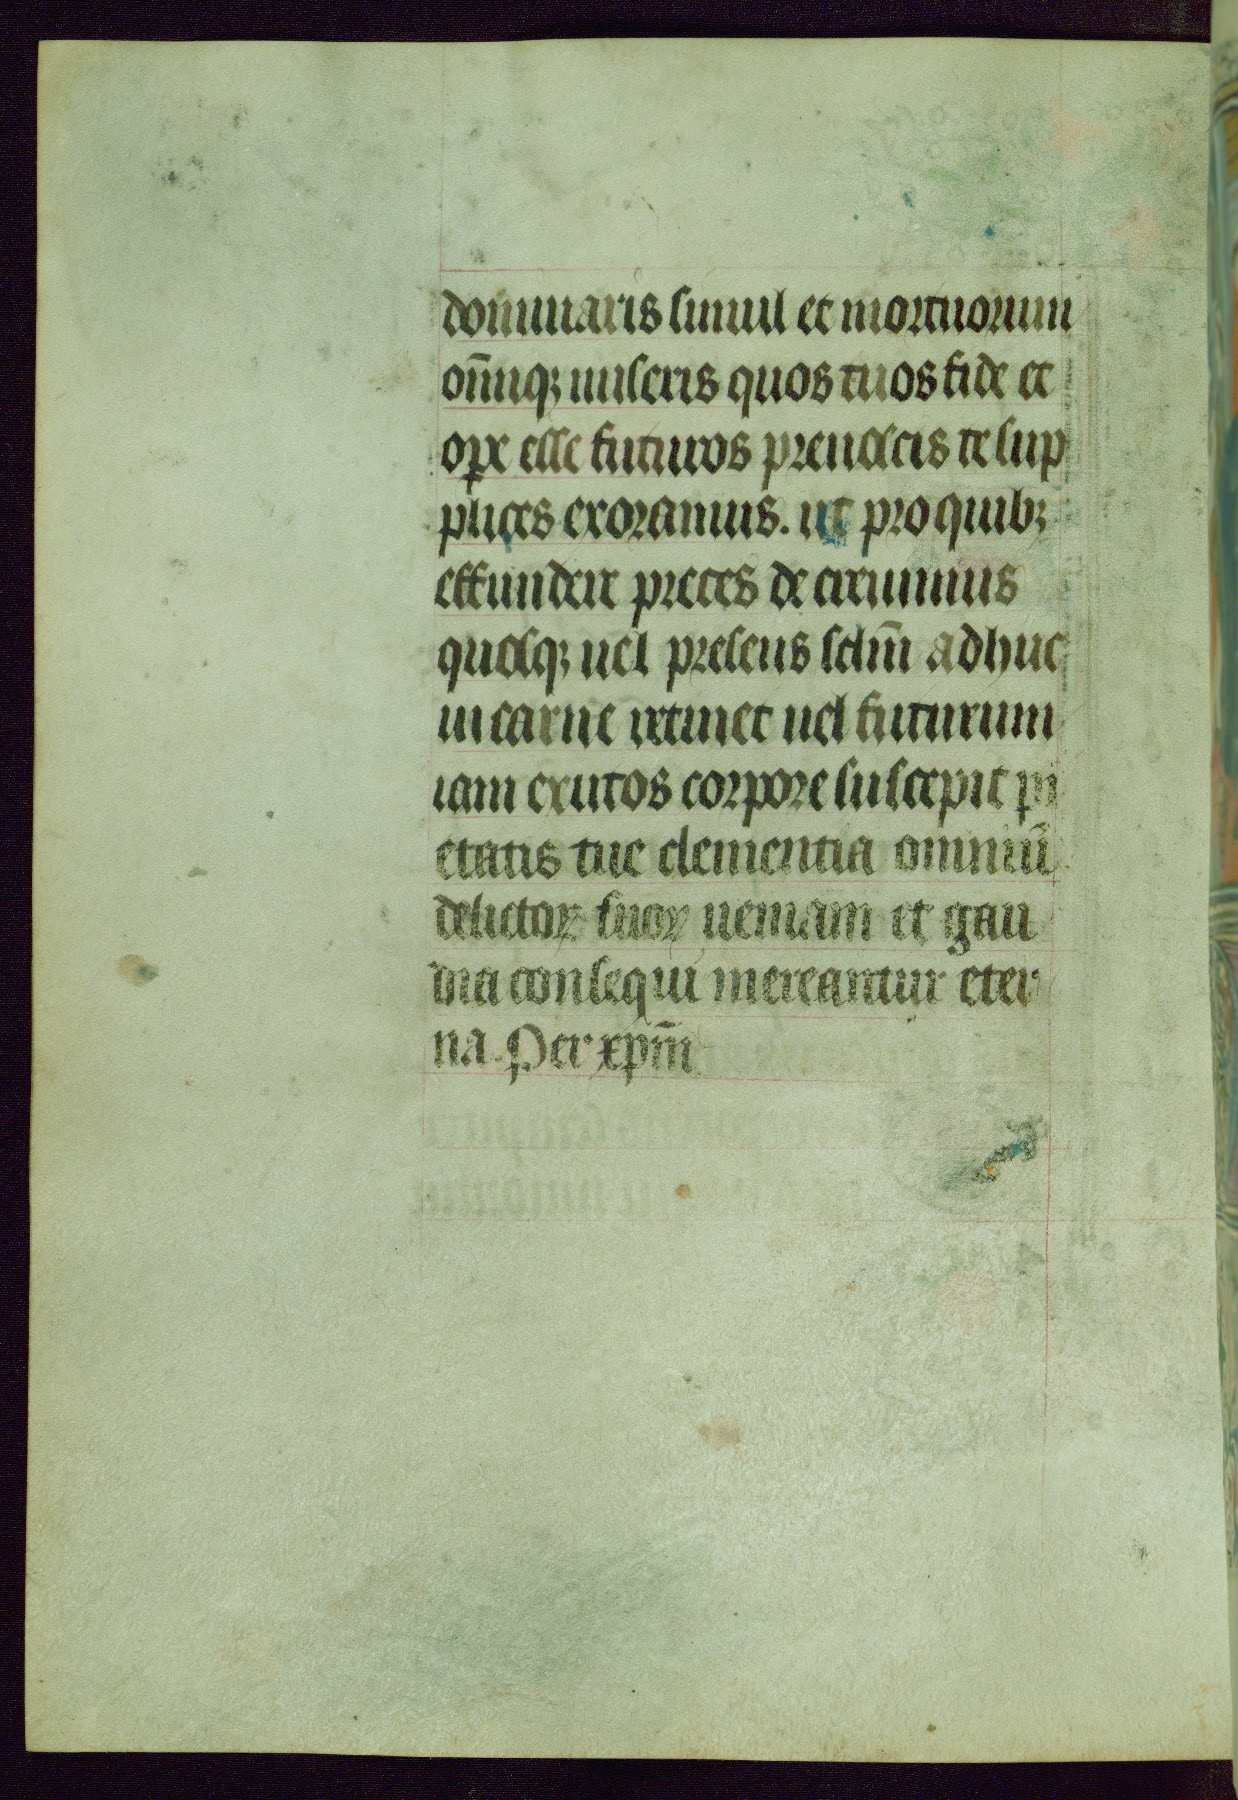 dominaris simul et mortuorum
om̄iuqꝫ miseris quos tuos fide et
oꝑe esse futuros prenoscis te sup
plices exoramus. ut pro quibꝫ
effundere preces decreuimus
quosqꝫ uel presens sclm̄ adhuc
in carne retinet uel futurum
iam exutos corpore suscepit pi
etatis tue clementia omniū
delictoꝝ suoꝝ ueniam et gau
dia consequi mereantur eter
na. Per xpm̄